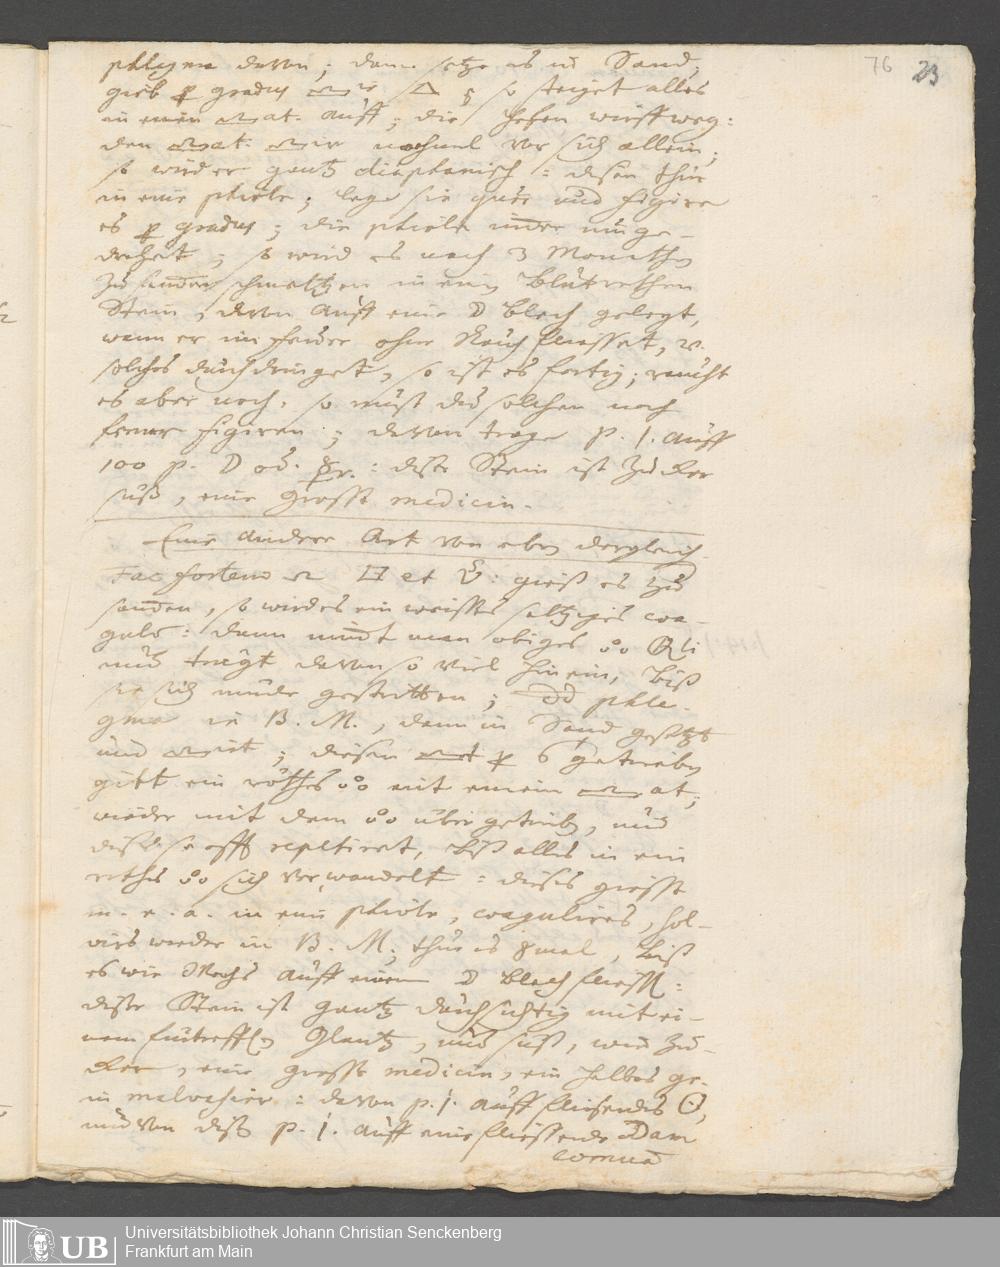 76 23
phlegma davon; dann setze es in Sand,
gieb p gradus 🜂 so steiget alles
in einen auff; die hefen wirff weg:
den nochmal vor sich allein;
so wird er gantz diaphanisch: diesen thue
in eine phiole; lege sie und figire
es p gradus; die phiole immer umge-
drehet; so wird es nach 3 Monathen
zusammen schmeltzen in ein blutrothen
Stein, davon auff eine ☽ blech gelegt,
wann er im feuer ohne Rauch fliesset, v.
solches durchdringet, so ist es fertig; raucht
es aber noch, so must du solchen noch
ferner figiren; davon trage p. 1. auff
100 p. ☽ od. : dieser Stein ist Zucker
süß, eine grosse medicin.
Eine andere Art von eben dergleich
Fac fortem et : gieß es zu
samen, so wird es ein weisses saltziges coa-
gulo: dann nimt man obiges
und trägt davon so viel hinein, biß
sie sich müde gestritten; phle-
gma in B. M., dann in Sand gesetzt
und ; diesen p 6 getrieben
gibt ein rothes mit einem at;
wieder mit dem übergetrieben, und
dieses so offt repetiret, biß alles in ein
rothes sich verwandelt: dieses giesse
in eine phiole, coagulirs, sol-
virs wieder in B. M; thue es 8mal, biß
es wie Wachs auff einem ☽ blech fliesse:
dieser Stein ist gantz durchsichtig mit ei-
nem fürtreffl. Glantz, und süß, wie Zu-
cker, eine grosse medicin, ein halbes gr.
in malvasier: davon p. 1. auff fliesendes ☉,
und von dieß p. 1. auff eine fliessende Dam
cornua
UB
Universitätsbibliothek Johann Christian Senckenberg
Frankfurt am Main